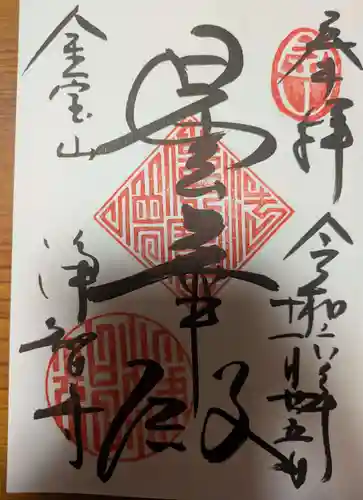 奉拝
令和六年
十一月廿五日
曇華殿
金宝山
浄智寺